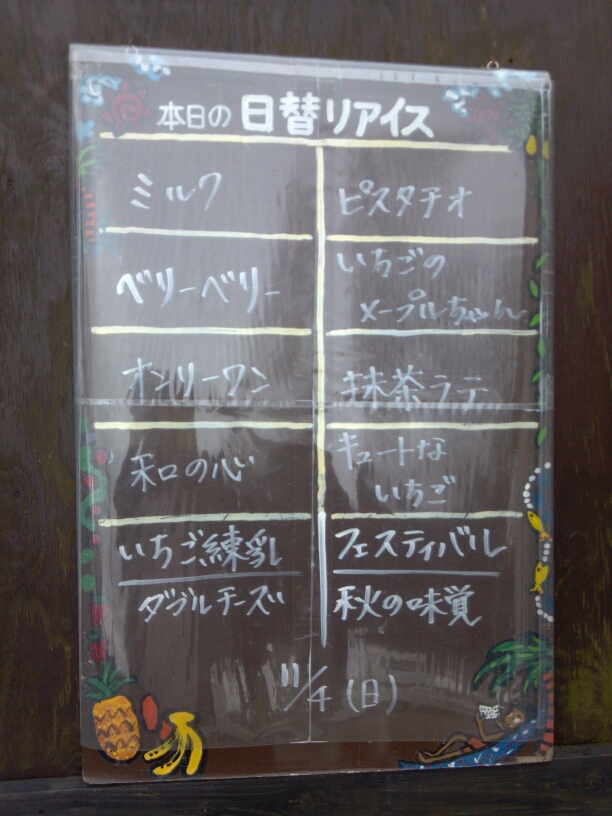 本日の 日替りアイス
ミルク
ピスタチオ
ベリーベリー
いちごの
メープルちゃん
オンリーワン
抹茶ラテ
和の心
キュートな
いちご
いちご練乳
フェスティバル
ダブルチーズ
秋の味覚
11/4(日)